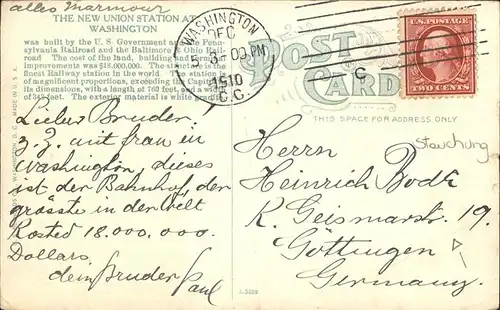 alles Marmour
THE NEW UNION STATION AT
WASHINGTON
was built by the U. S. Government and the Penn-
sylvania Railroad and the Baltimore & Ohio Rail-
road The cost of the land, building and
improvements was $18,000,000. The station is the
finest Railway station in the world The station is
of magnificent proportions, exceeding the Capitol in
its dimensions, with a length of 760 feet, and a width
of 343 feet. The exterior material is white granite
WASHINGTON
DEC
5
PM
1910
D.C.
POST
CARD
C
U.S. POSTAGE
TWO CENTS
THIS SPACE FOR ADDRESS ONLY
Lieber Bruder!
z. Z. mit frau in
Washington, dieses
ist der Bahnhof, der
grösste in der Welt
Kosted 18.000.000.
Dollars.
dein Bruder Paul
Stauchung
Herrn
Heinrich Bode
K. Geismarstr. 19.
Göttingen
Germany.
MADE IN U.S.A.